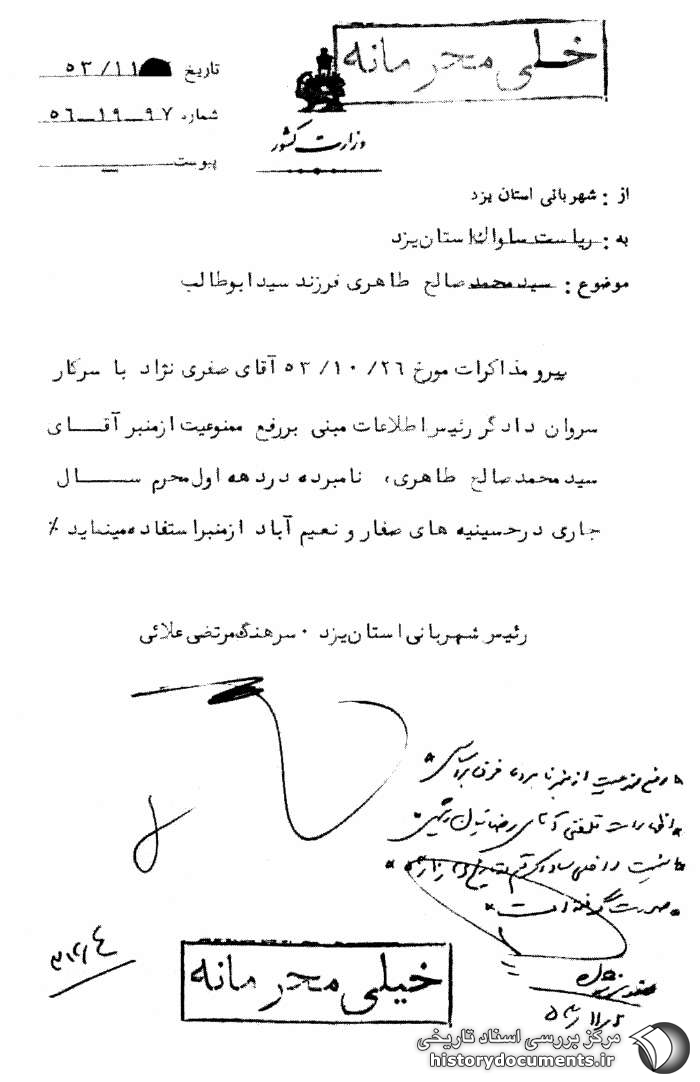 خیلی محرمانه
تاریخ ۵۳/۱۱
شماره ۹۷ـ۱۹ـ۵۶
پیوست
وزارت کشور
از : شهربانی استان یزد
به : ریاست ساواک استان یزد
موضوع : سید محمد صالح طاهری فرزند سید ابوطالب
پیرو مذاکرات مورخ ۲۶/ ۱۰/ ۵۳ آقای صفری نژاد با سرکار
سروان دادگر رئیس اطلاعات مبنی بر رفع ممنوعیت از منبر آقـــای
سید محمد صالح طاهری، نامبرده در دهه اول محرم ســـال
جاری در حسینیه های صفار و نعیم آباد از منبر استفاده مینماید ٪
رئیس شهربانی استان یزد ۰ سرهنگ مرتضی علائی
رفع ممنوعیت از منبر نامبرده فوق
اظهارات تلفنی آقای
صورت گرفته است
خیلی محرمانه
مرکز بررسی اسناد تاریخی
historydocuments.ir